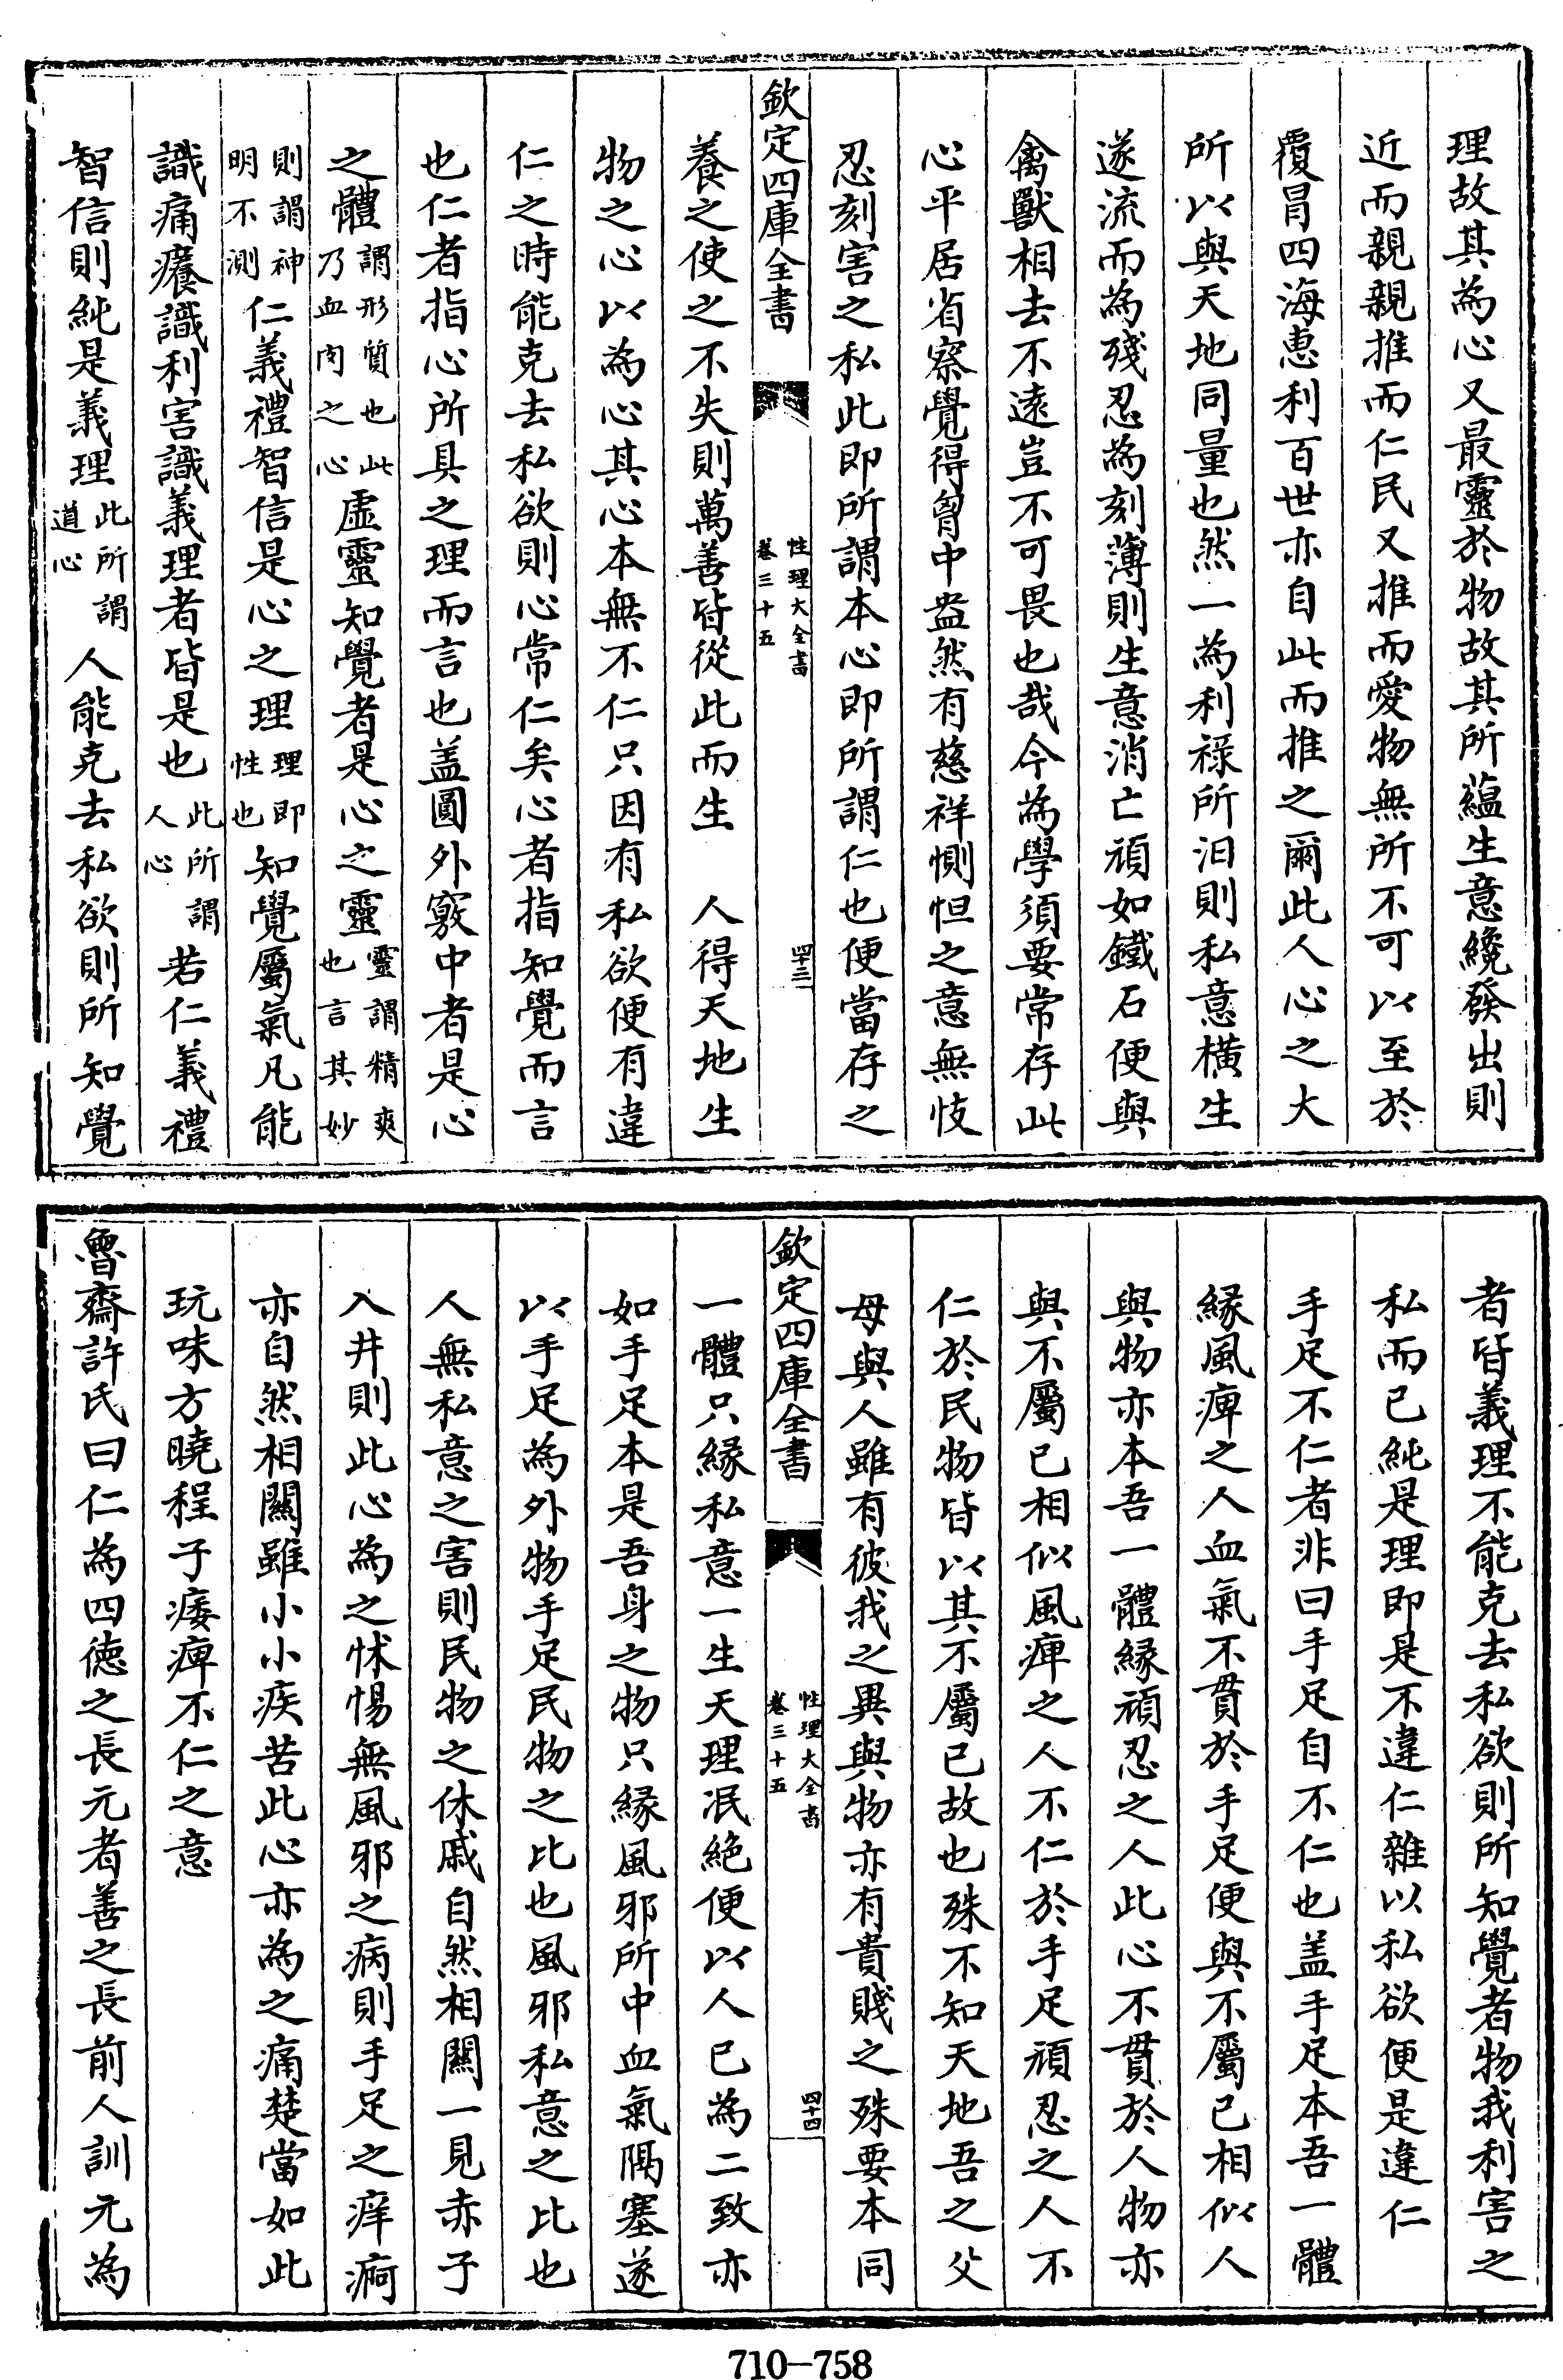 理故其為心又最靈於物故其所蘊生意纔發出則
近而親親推而仁民又推而愛物無所不可以至於
覆冒四海惠利百世亦自此而推之爾此人心之大
所以與天地同量也然一為利祿所汨則私意橫生
遂流而為殘忍為刻薄則生意消亡頑如鐵石便與
禽獸相去不遠豈不可畏也哉今為學須要常存此
心平居省察覺得胷中盎然有慈祥惻怛之意無忮
忍刻害之私此即所謂本心即所謂仁也便當存之
欽定四庫全書
性理大全書
卷三十五
四十三
養之使之不失則萬善皆從此而生　人得天地生
物之心以為心其心本無不仁只因有私欲便有違
仁之時能克去私欲則心常仁矣心者指知覺而言
也仁者指心所具之理而言也盖圓外竅中者是心
之體謂形質也此乃血肉之心虛靈知覺者是心之靈靈謂精爽也言其妙
則謂神明不測仁義禮智信是心之理理即性也知覺屬氣凡能
識痛癢識利害識義理者皆是也此所謂人心若仁義禮
智信則純是義理此所謂道心人能克去私欲則所知覺
者皆義理不能克去私欲則所知覺者物我利害之
私而已純是理即是不違仁雜以私欲便是違仁
手足不仁者非曰手足自不仁也盖手足本吾一體
緣風痺之人血氣不貫於手足便與不屬已相似人
與物亦本吾一體緣頑忍之人此心不貫於人物亦
與不屬已相似風痺之人不仁於手足頑忍之人不
仁於民物皆以其不屬已故也殊不知天地吾之父
母與人雖有彼我之異與物亦有貴賤之殊要本同
欽定四庫全書
性理大全書
卷三十五
四十四
一體只緣私意一生天理泯絕便以人已為二致亦
如手足本是吾身之物只緣風邪所中血氣隔塞遂
以手足為外物手足民物之比也風邪私意之比也
人無私意之害則民物之休戚自然相關一見赤子
入井則此心為之怵惕無風邪之病則手足之痒痾
亦自然相關雖小小疾苦此心亦為之痛楚當如此
玩味方曉程子痿痺不仁之意
魯齋許氏曰仁為四德之長元者善之長前人訓元為
710-758